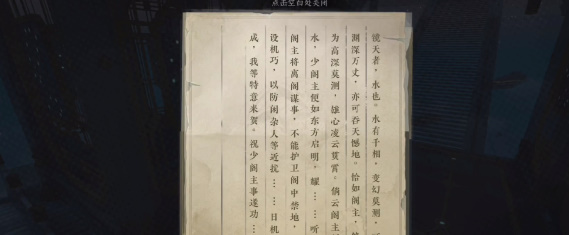 点击空白处关闭
镜天者，水也。水有千相，变幻莫测，
渊深万丈，亦可吞天憾地。恰如阁主，
为高深莫测，雄心凌云贯霄。倘云阁主
水，少阁主便如东方启明，耀……听
阁主将离阁谋事，不能护卫阁中禁地，
设机巧，以防闲杂人等近扰……日机
成，我等特意来贺。祝少阁主事遂功……